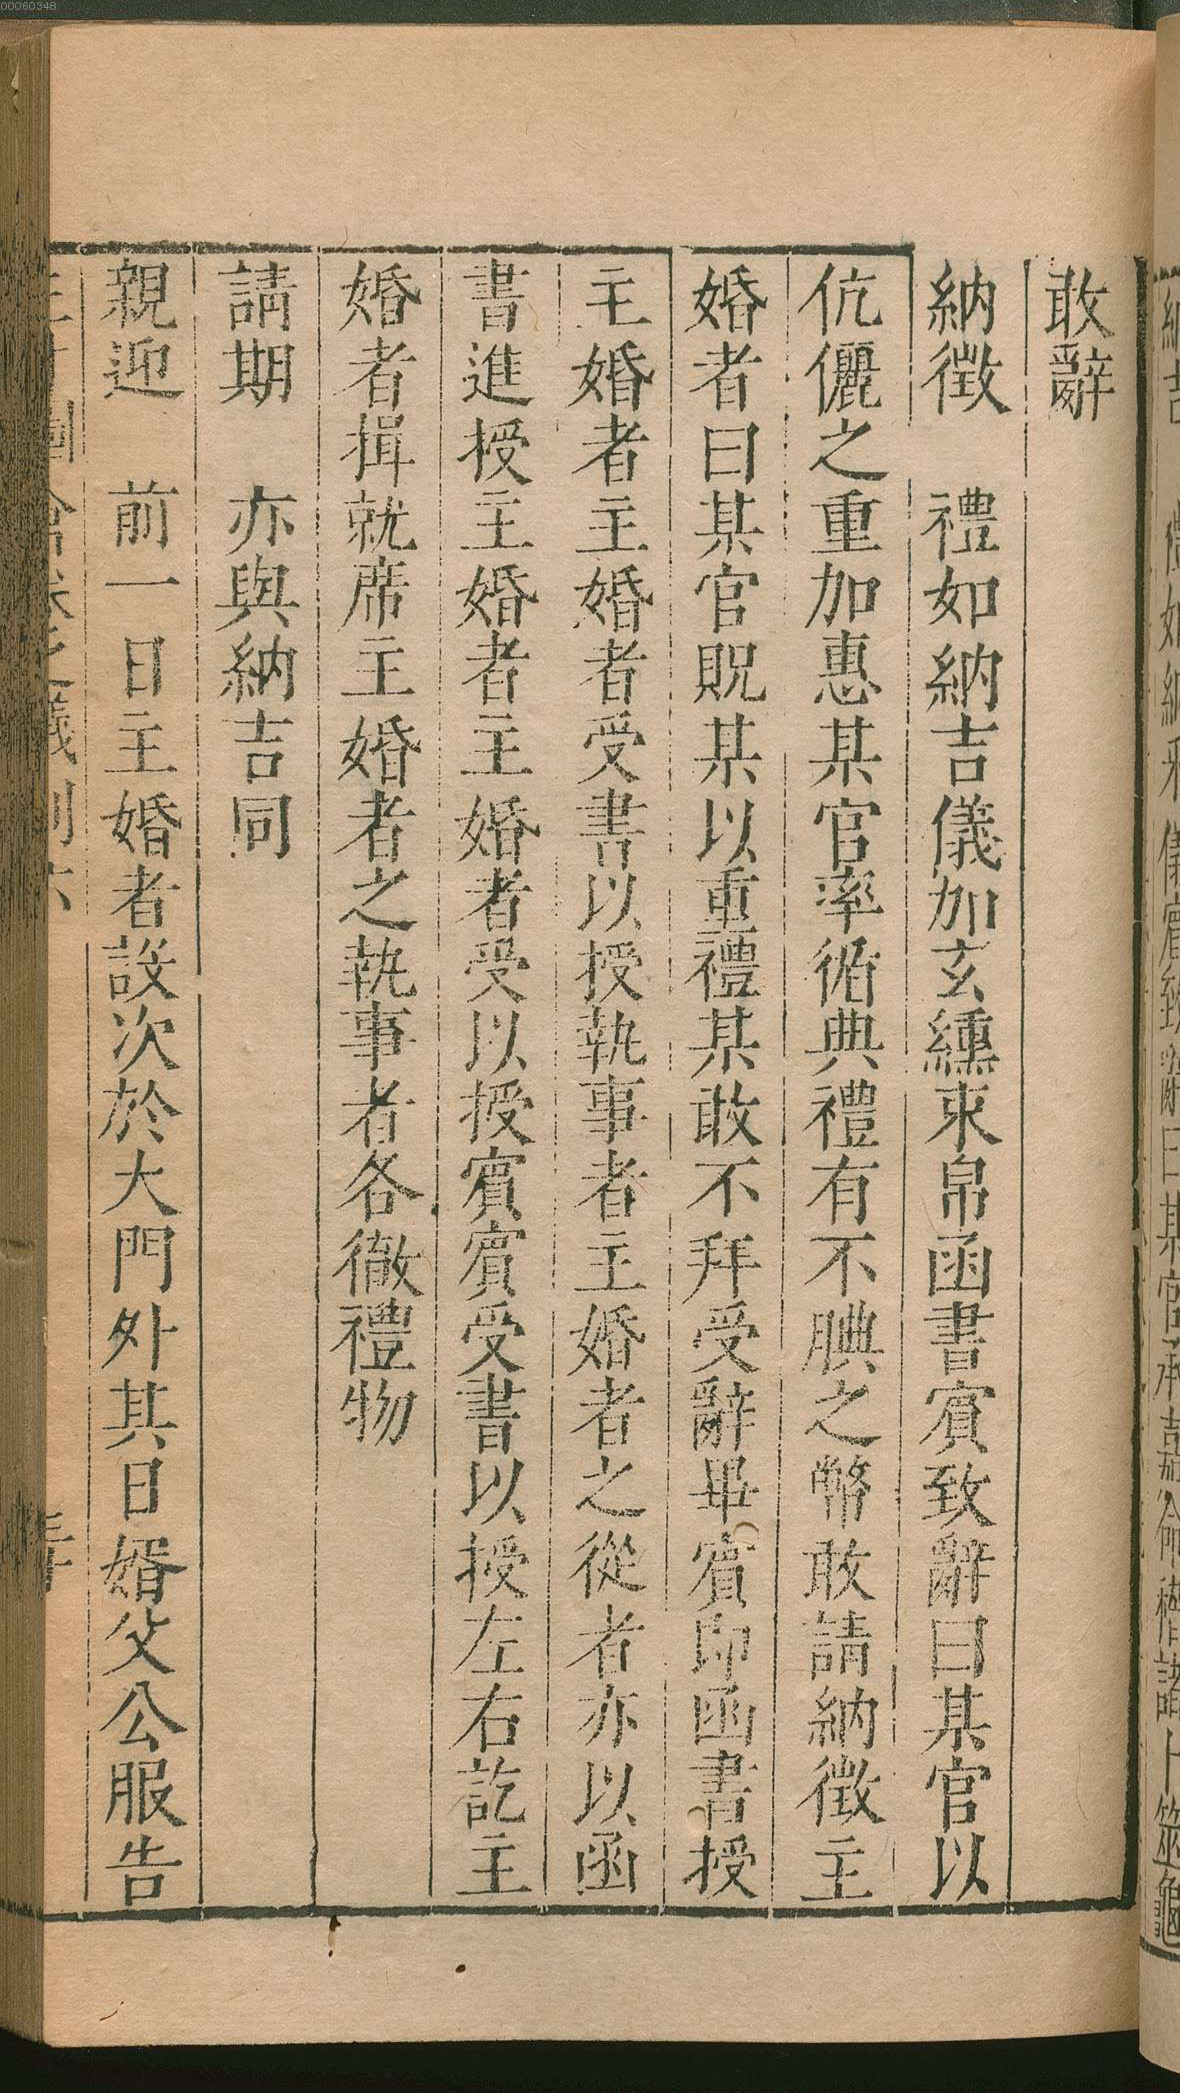 00060348
敢辭
納徵　禮如納吉儀加玄纁束帛函書賓致辭曰某官以
伉儷之重加惠某官率循典禮有不腆之幣敢請納徵主
婚者曰某官貺某以重禮某敢不拜受辭畢賓即函書授
主婚者主婚者受書以授執事者主婚者之從者亦以函
書進授主婚者主婚者受以授賓賓受書以授左右訖主
婚者揖就席主婚者之執事者各徹禮物
請期　亦與納吉同
親迎　前一日主婚者設次於大門外其日婿父公服告